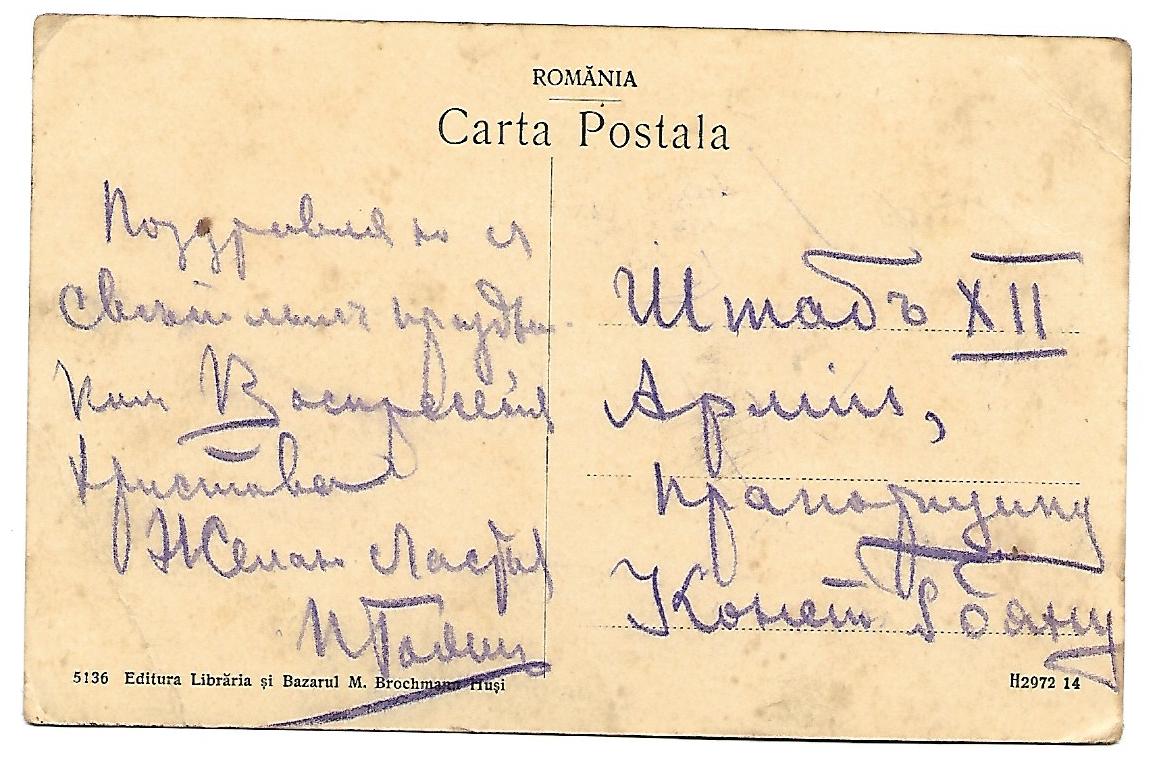 ROMÂNIA
Carta Postala
Поздравляю съ
Свѣтлымъ праздни-
комъ Воскресенія
Христова
Желаю счастья
Штабъ XII
Арміи,
Прапорщику
5136 Editura Librăria și Bazarul M. Brochmann Huși
H2972 14